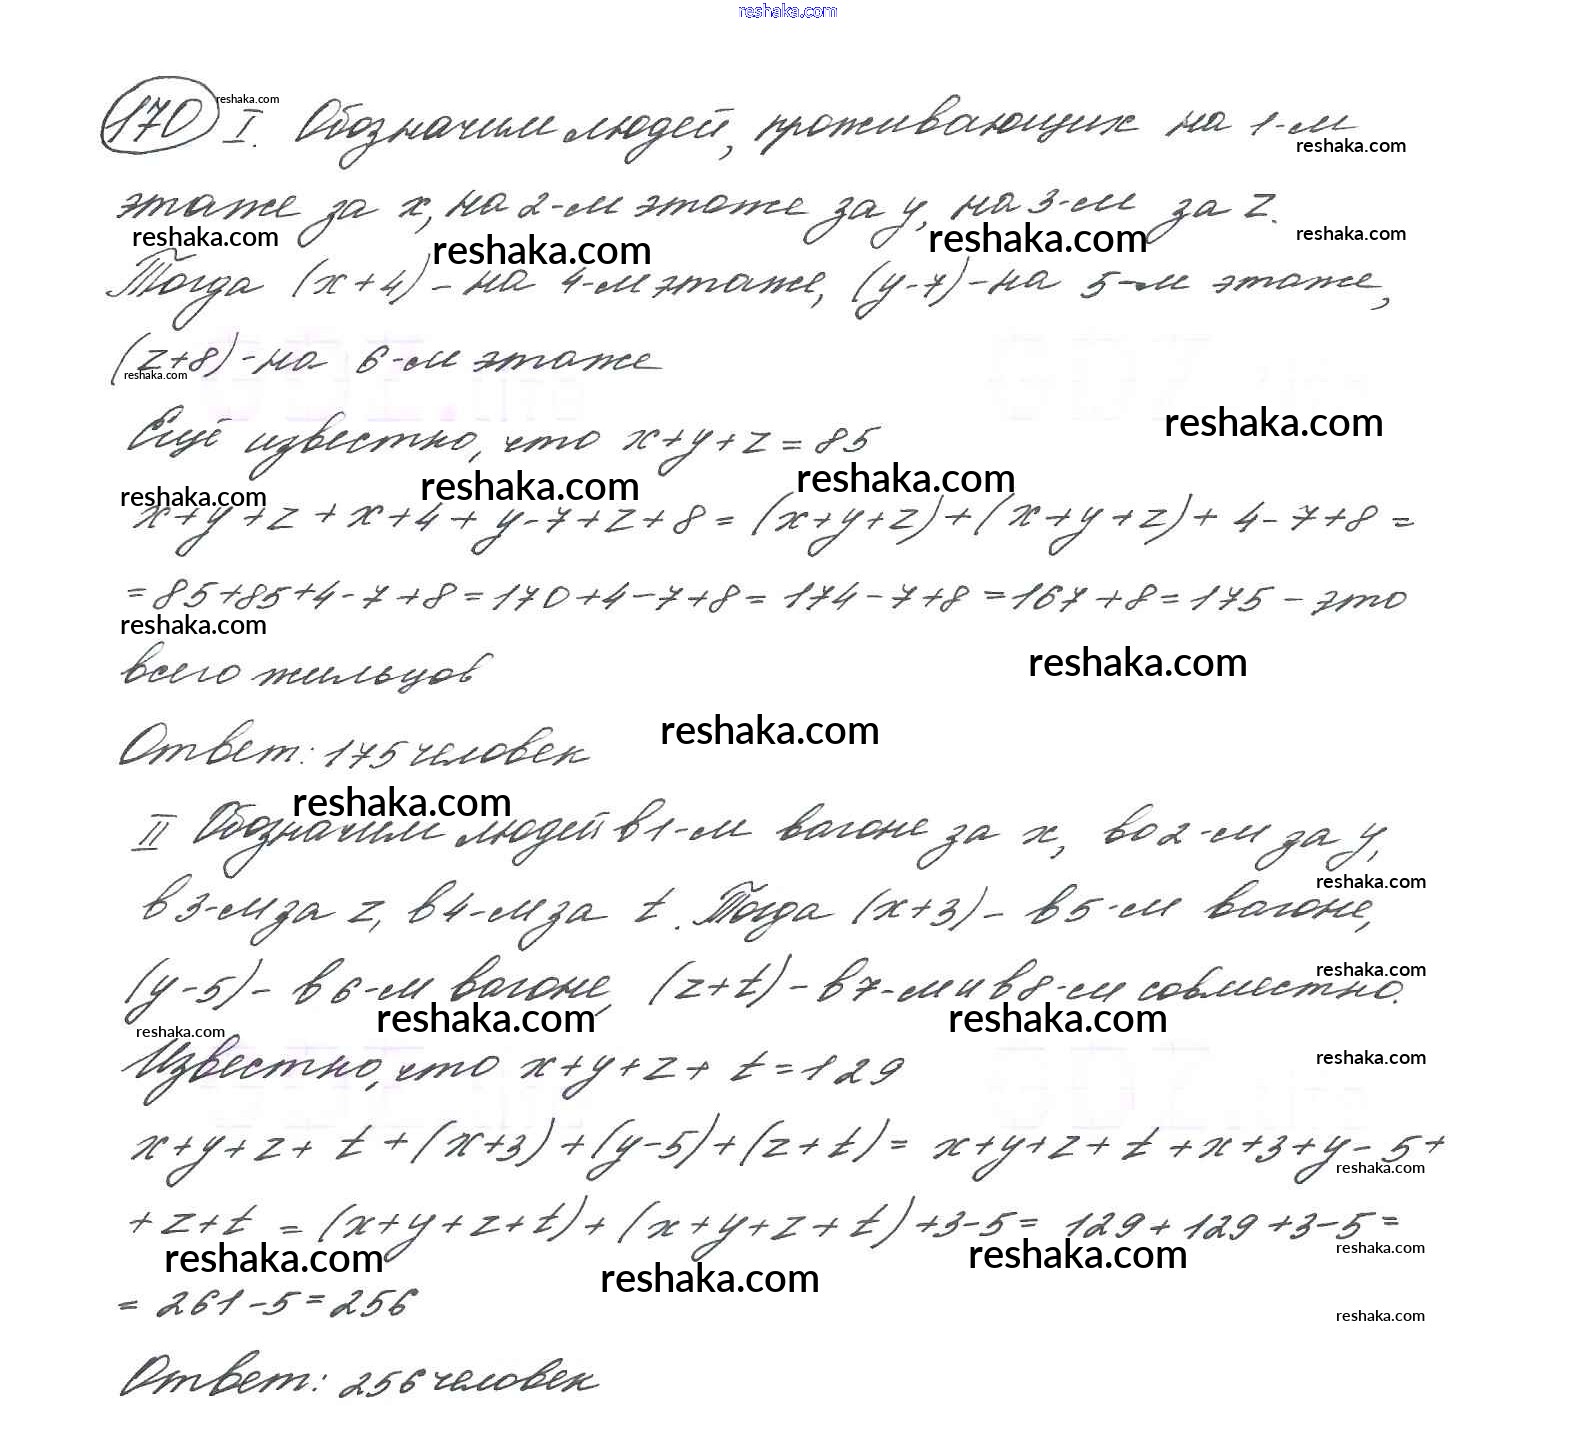 reshaka.com
170 I. Обозначим людей, проживающих на 1-м
reshaka.com
reshaka.com
этаже за x, на 2-м этаже за y, на 3-м за z.
reshaka.com reshaka.com reshaka.com reshaka.com
Тогда (x+4) - на 4-м этаже, (y-7) - на 5-м этаже,
(z+8) - на 6-м этаже
reshaka.com
reshaka.com
Ещё известно, что x+y+z=85
reshaka.com reshaka.com reshaka.com
x+y+z+x+4+y-7+z+8=(x+y+z)+(x+y+z)+4-7+8=
=85+85+4-7+8=170+4-7+8=174-7+8=167+8=175 - это
reshaka.com
всего жильцов
reshaka.com
reshaka.com
Ответ: 175 человек
reshaka.com
II Обозначим людей в 1-м вагоне за x, во 2-м за y,
reshaka.com
в 3-м за z, в 4-м за t. Тогда (x+3) - в 5-м вагоне,
reshaka.com
(y-5) - в 6-м вагоне, (z+t) - в 7-м и в 8-м совместно.
reshaka.com reshaka.com reshaka.com
Известно, что x+y+z+t=129
reshaka.com
x+y+z+t+(x+3)+(y-5)+(z+t)=x+y+z+t+x+3+y-5+
reshaka.com
+z+t=(x+y+z+t)+(x+y+z+t)+3-5=129+129+3-5=
reshaka.com reshaka.com reshaka.com reshaka.com
=261-5=256
reshaka.com
Ответ: 256 человек